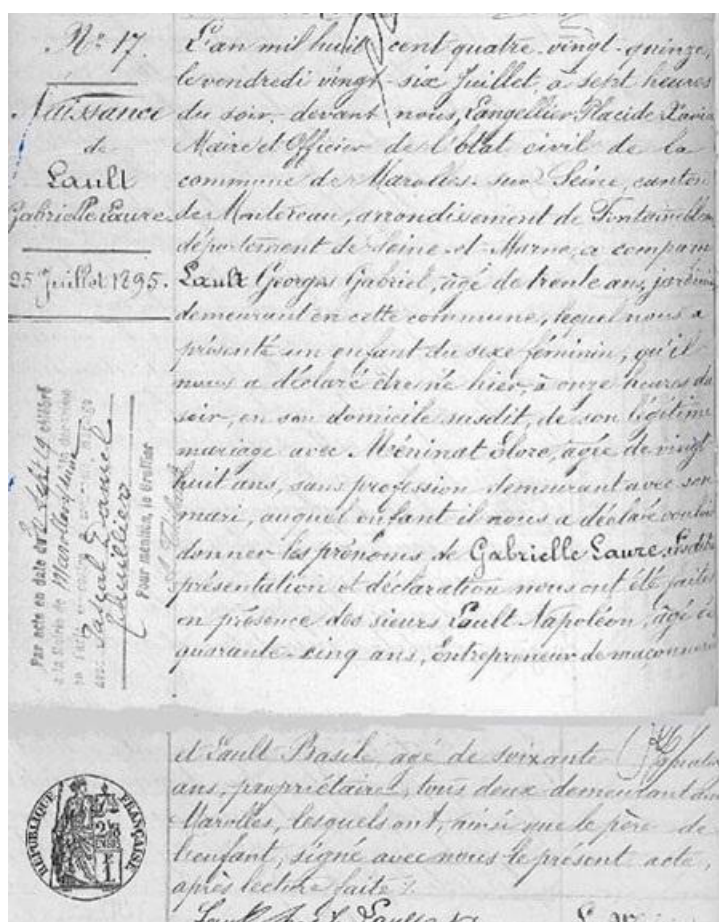 Nº 17.
Naissance
de
Lault
Gabrielle Laure
25 Juillet 1895.
L'an mil huit cent quatre-vingt-quinze,
le vendredi vingt-six Juillet, à sept heures
du soir, devant nous, Langellier Placide Xavier
Maire et Officier de l'état civil de la
commune de Marolles-sur-Seine, canton
de Montereau, arrondissement de Fontainebleau
département de Seine-et-Marne, a comparu
Lault Georges Gabriel, âgé de trente ans, jardinier
demeurant en cette commune, lequel nous a
présenté un enfant du sexe féminin, qu'il
nous a déclaré être né hier, à onze heures du
soir, en son domicile susdit, de son légitime
mariage avec Méninat Flore, âgée de vingt
huit ans, sans profession demeurant avec son
mari, auquel enfant il nous a déclaré vouloir
donner les prénoms de Gabrielle Laure. Lesdites
présentation et déclaration nous ont été faites
en présence des sieurs Lault Napoléon, âgé de
quarante-cinq ans, Entrepreneur de maçonnerie
Par acte en date du
à la Mairie de Marolles s/Seine
avec Pascal Daniel
Pour mention, le Greffier
et Lault Basile, âgé de soixante
ans, propriétaire, tous deux demeurant à
Marolles, lesquels ont, ainsi que le père de
l'enfant, signé avec nous le présent acte,
après lecture faite.
RÉPUBLIQUE FRANÇAISE
Lault